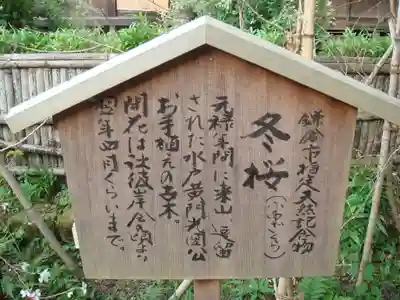 鎌倉市指定天然記念物
冬桜
元禄年間に来山、逗留
された水戸黄門光圀公
お手植えの古木。
開花は秋彼岸会の頃より
翌年四月くらいまで。